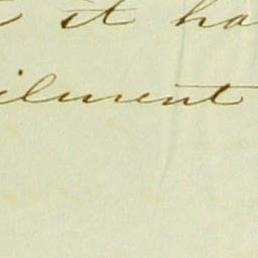 it ha
ilment